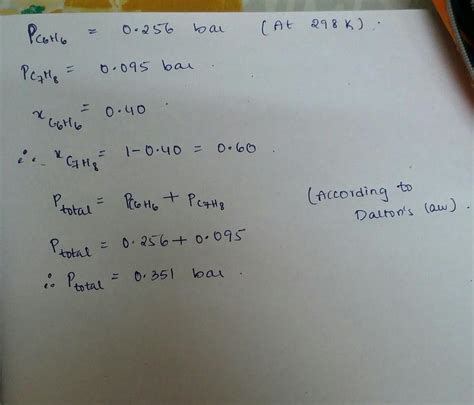 P_C6H6 = 0.256 bar (At 298K).
P_C7H8 = 0.095 bar.
x_C6H6 = 0.40
∴ x_C7H8 = 1-0.40 = 0.60.
P_total = P_C6H6 + P_C7H8 (According to Dalton's law)
P_total = 0.256 + 0.095
∴ P_total = 0.351 bar.